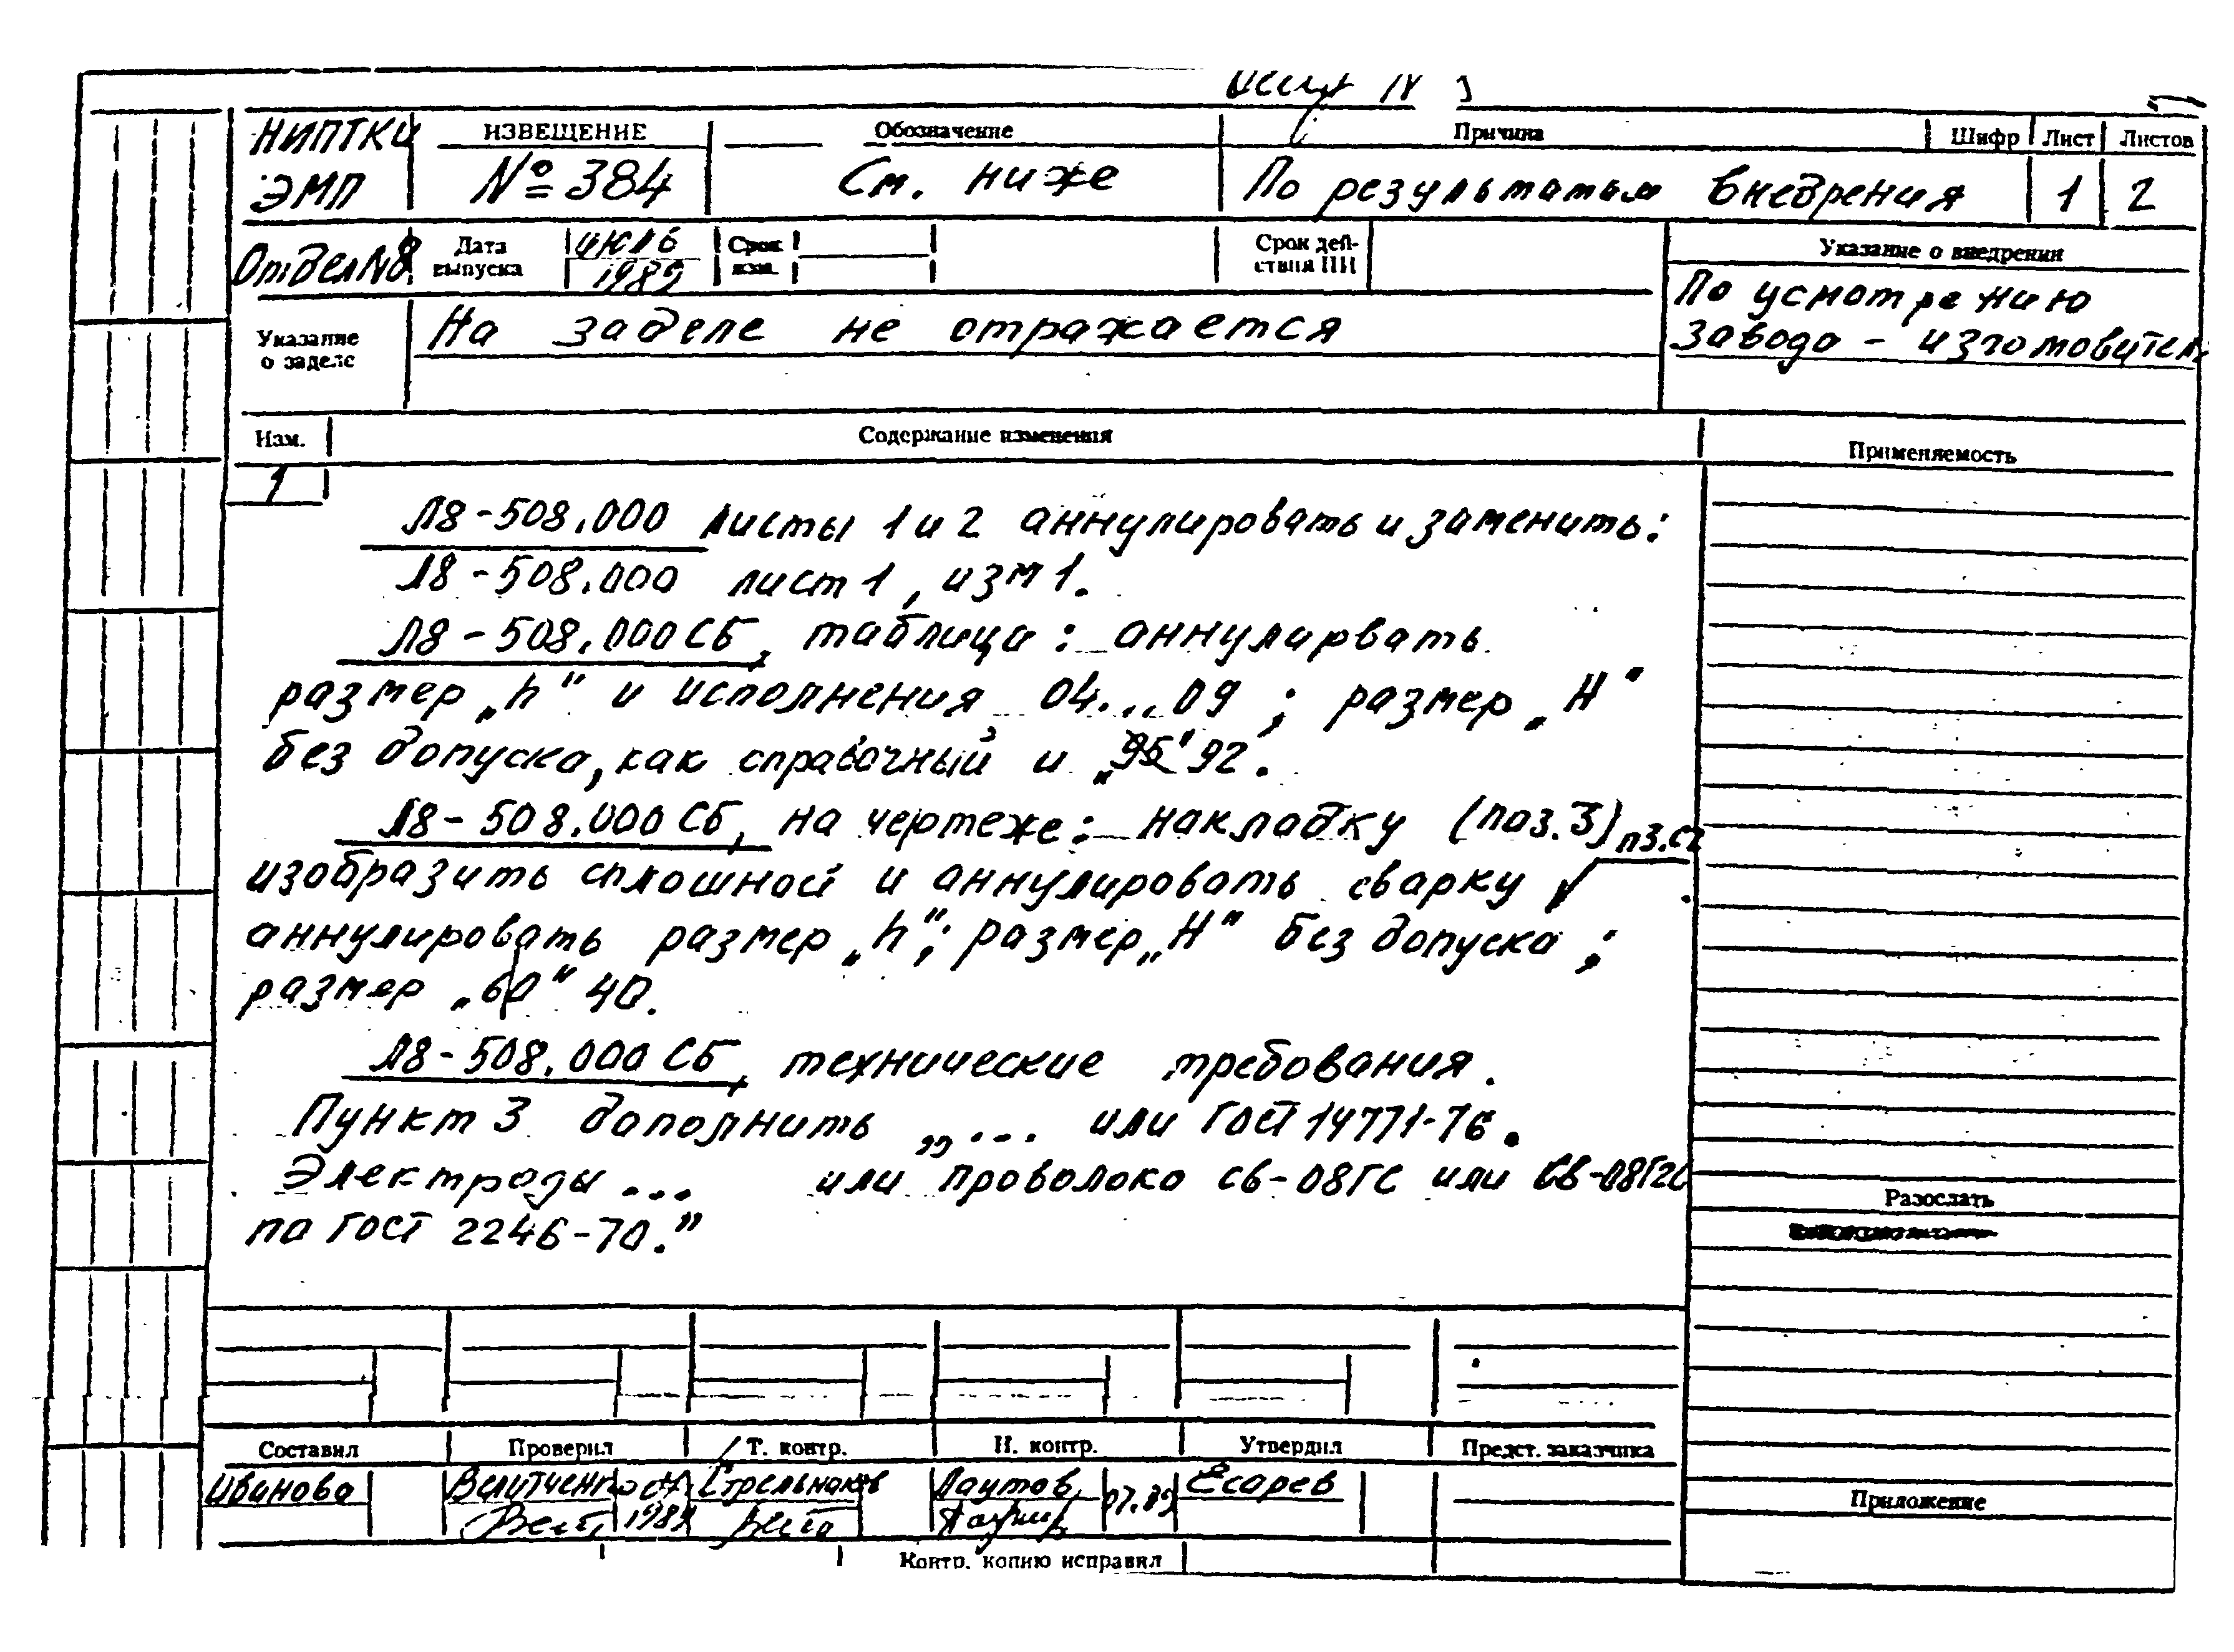 НИПТКИ ИЗВЕЩЕНИЕ Обозначение Причина Шифр Лист Листов
ЭМП № 384 См. ниже По результатам внедрения 1 2
Отдел №8 Дата выпуска июль 1989 Срок изм. Срок действия ПИ Указание о внедрении
По усмотрению
завода - изготовителя
Указание о заделе На заделе не отражается
Изм. Содержание изменения Применяемость
1
Л8-508.000 листы 1 и 2 аннулировать и заменить:
Л8-508.000 лист 1, изм 1.
Л8-508.000 СБ, таблица: аннулирвать
размер „h" и исполнения 04...09; размер „H"
без допуска, как справочный и „95" 92.
Л8-508.000 СБ, на чертеже: накладку (поз. 3)
изобразить сплошной и аннулировать сварку
аннулировать размер „h"; размер „H" без допуска;
размер „60" 40.
Л8-508.000 СБ, технические требования.
Пункт 3 дополнить „... или ГОСТ 14771-76.
Электроды... или проволока Св-08ГС или Св-08Г2С
по ГОСТ 2246-70."
Разослать
Составил Проверил Т. контр. Н. контр. Утвердил Предст. заказчика
Иванова Лаутов 07.89 Есарев
Приложение
Контр. копию исправил